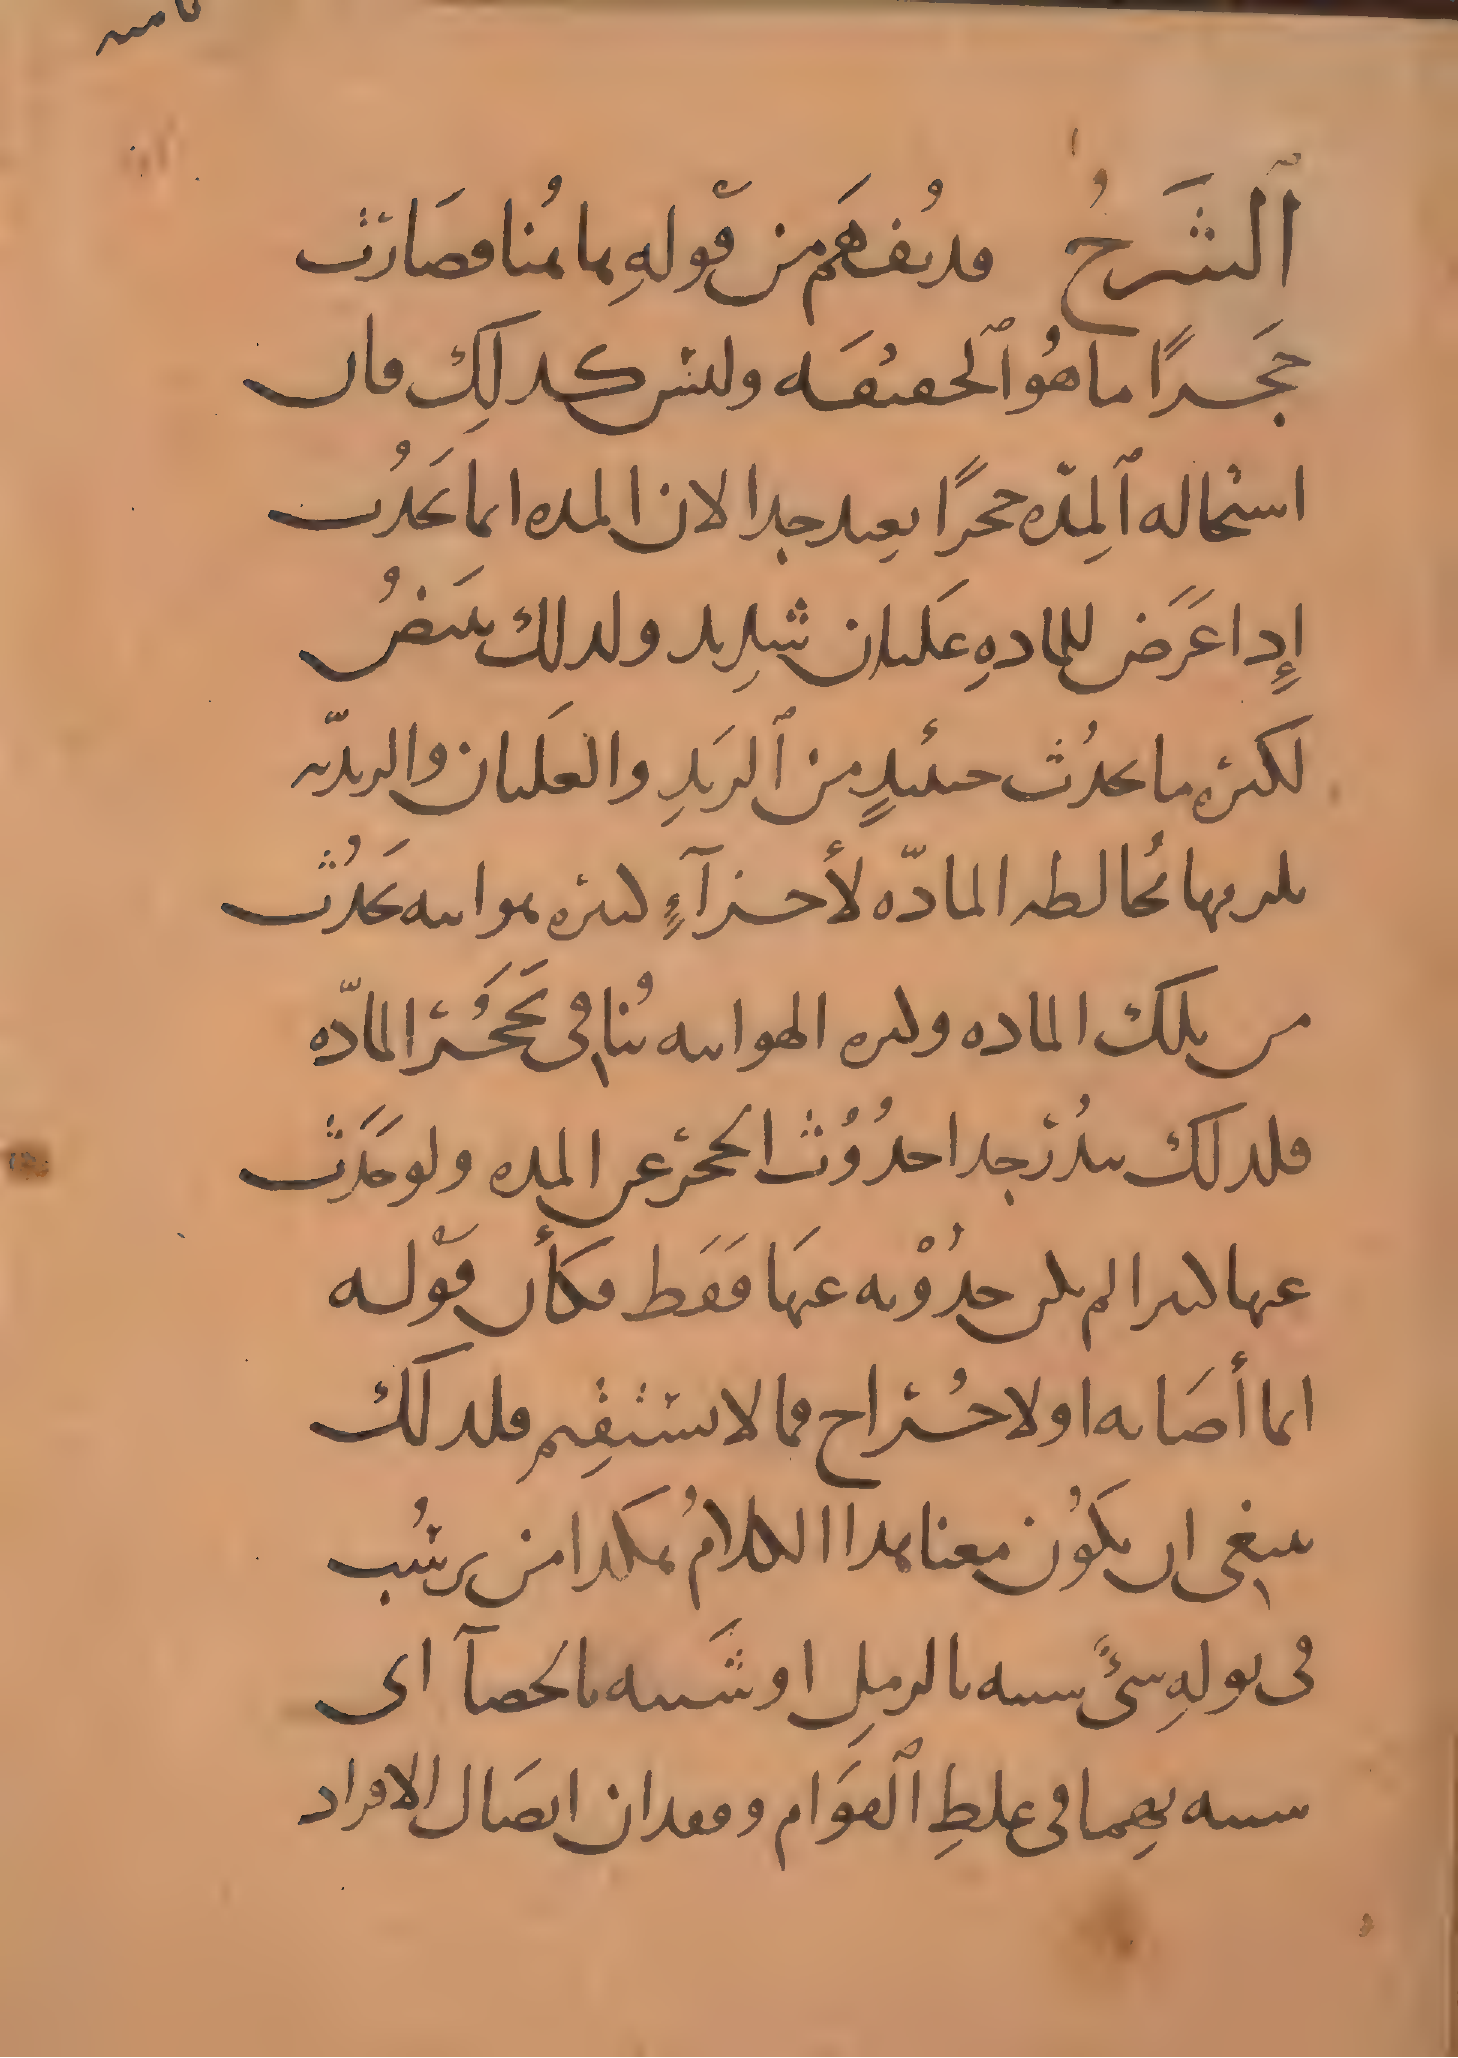 الشَرحُ قد يُفهَم من قَولهِ ربما يُمنا فصَارَت
حَجَرًا ما هُو الحقيقَه وليس كذلِك فان
استحاله المِدّه حجرًا بعيد جدا لان المده انما تَحدُث
إذا عَرَض للمادهِ غليان شدِيد ولذلك تبيَضُ
لكثره ما يحدُث حينئذٍ من الزبَدِ والغَليان والزبديّه
يلزمها مُخالطه المادّه لأجزآءٍ كثيره هوائيه تَحدُث
من تلك الماده وكثره الهوائيه يُنافي تَحَجُّر المادّه
فلذلك يندُر جدا حدُوُث الحجر عن المده ولو حَدَث
عنها كثيرا لم يكن حدُوْثه عنها فَقَط فكأن قَوْله
انما أصَابه اولا خُرّاج فما لا يستقِيم فلذلك
ينبغي ان يكُون معنا هذا الكلامُ هكذا من يرسُب
في بولهِ شئٌ شبيه بالرملِ او شَبيه بالحصآ اى
شبيه بهِما في غلظِ القوَام وفقدان اتصَال الافراد